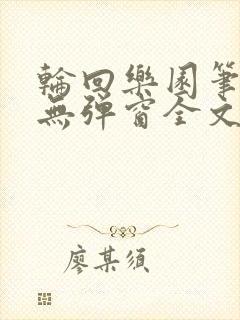 輪回樂園筆
無彈窗全文
廖某須